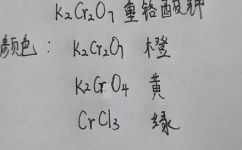 K₂Cr₂O₇ 重铬酸钾
颜色: K₂Cr₂O₇ 橙
K₂CrO₄ 黄
CrCl₃ 绿